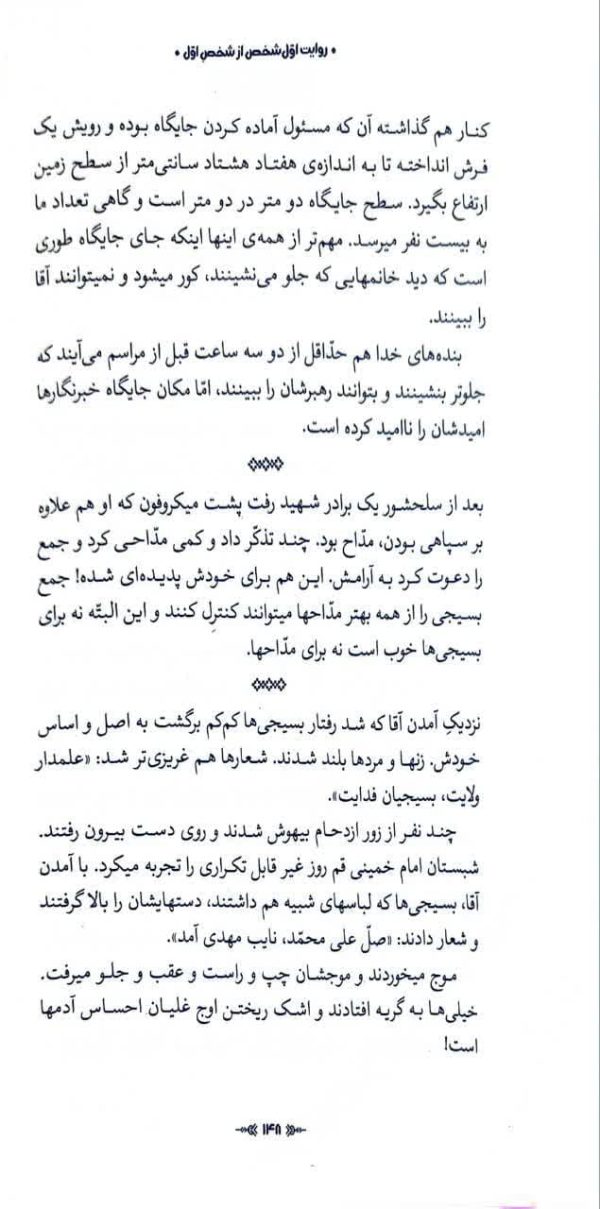 • روایت اوّل شخص از شخصِ اوّل •
کنـار هم گذاشـته آن که مسـئول آماده کردن جایگاه بـوده و رویش یک
فـرش انداختـه تا بـه اندازه‌ی هفتـاد هشـتاد سـانتی‌متر از سـطح زمین
ارتفاع بگیرد. سـطح جایـگاه دو متر در دو متر اسـت و گاهی تعداد ما
به بیسـت نفر میرسـد. مهم‌تر از همه‌ی اینها اینکه جـای جایگاه طوری
اسـت که دید خانمهایی که جلو می‌نشـینند، کور میشـود و نمیتوانند آقا
را ببینند.
بنده‌های خدا هم حدّاقل از دو سه ساعت قبل از مراسم می‌آیند که
جلوتر بنشینند و بتوانند رهبرشان را ببینند، امّا مکان جایگاه خبرنگارها
امیدشان را ناامید کرده است.
بعد از سلحشور یک برادر شـهید رفت پشـت میکروفون که او هم علاوه
بر سـپاهی بـودن، مدّاح بود. چنـد تذکّر داد و کمی مدّاحـی کرد و جمع
را دعوت کـرد به آرامش. این هم برای خـودش پدیده‌ای شده! جمع
بسـیجی را از همه بهتر مدّاحها میتوانند کنترلِ کننـد و این البتّه نه برای
بسیجی‌ها خوب است نه برای مدّاحها.
نزدیکِ آمدن آقا که شـد رفتار بسیجی‌ها کم‌کم برگشت به اصل و اساس
خودش. زنهـا و مردها بلند شـدند. شـعارها هـم غریزی‌تر شـد: «علمدار
ولایت، بسیجیان فدایت».
چنـد نفـر از زور ازدحـام بیهوش شـدند و روی دسـت بیـرون رفتنـد.
شبستان امام خمینی قم روز غیر قابل تکراری را تجربه میکرد. با آمدن
آقا، بسـیجی‌ها که لباسهای شبیه هم داشـتند، دستهایشان را بالا گرفتند
و شعار دادند: «صلّ علی محمّد، نایب مهدی آمد».
مـوج میخوردنـد و موجشـان چپ و راسـت و عقب و جلـو میرفت.
خیلی‌هـا به گریـه افتادنـد و اشـک ریختـن اوج غلیـان احسـاس آدمها
است!
۱۴۸